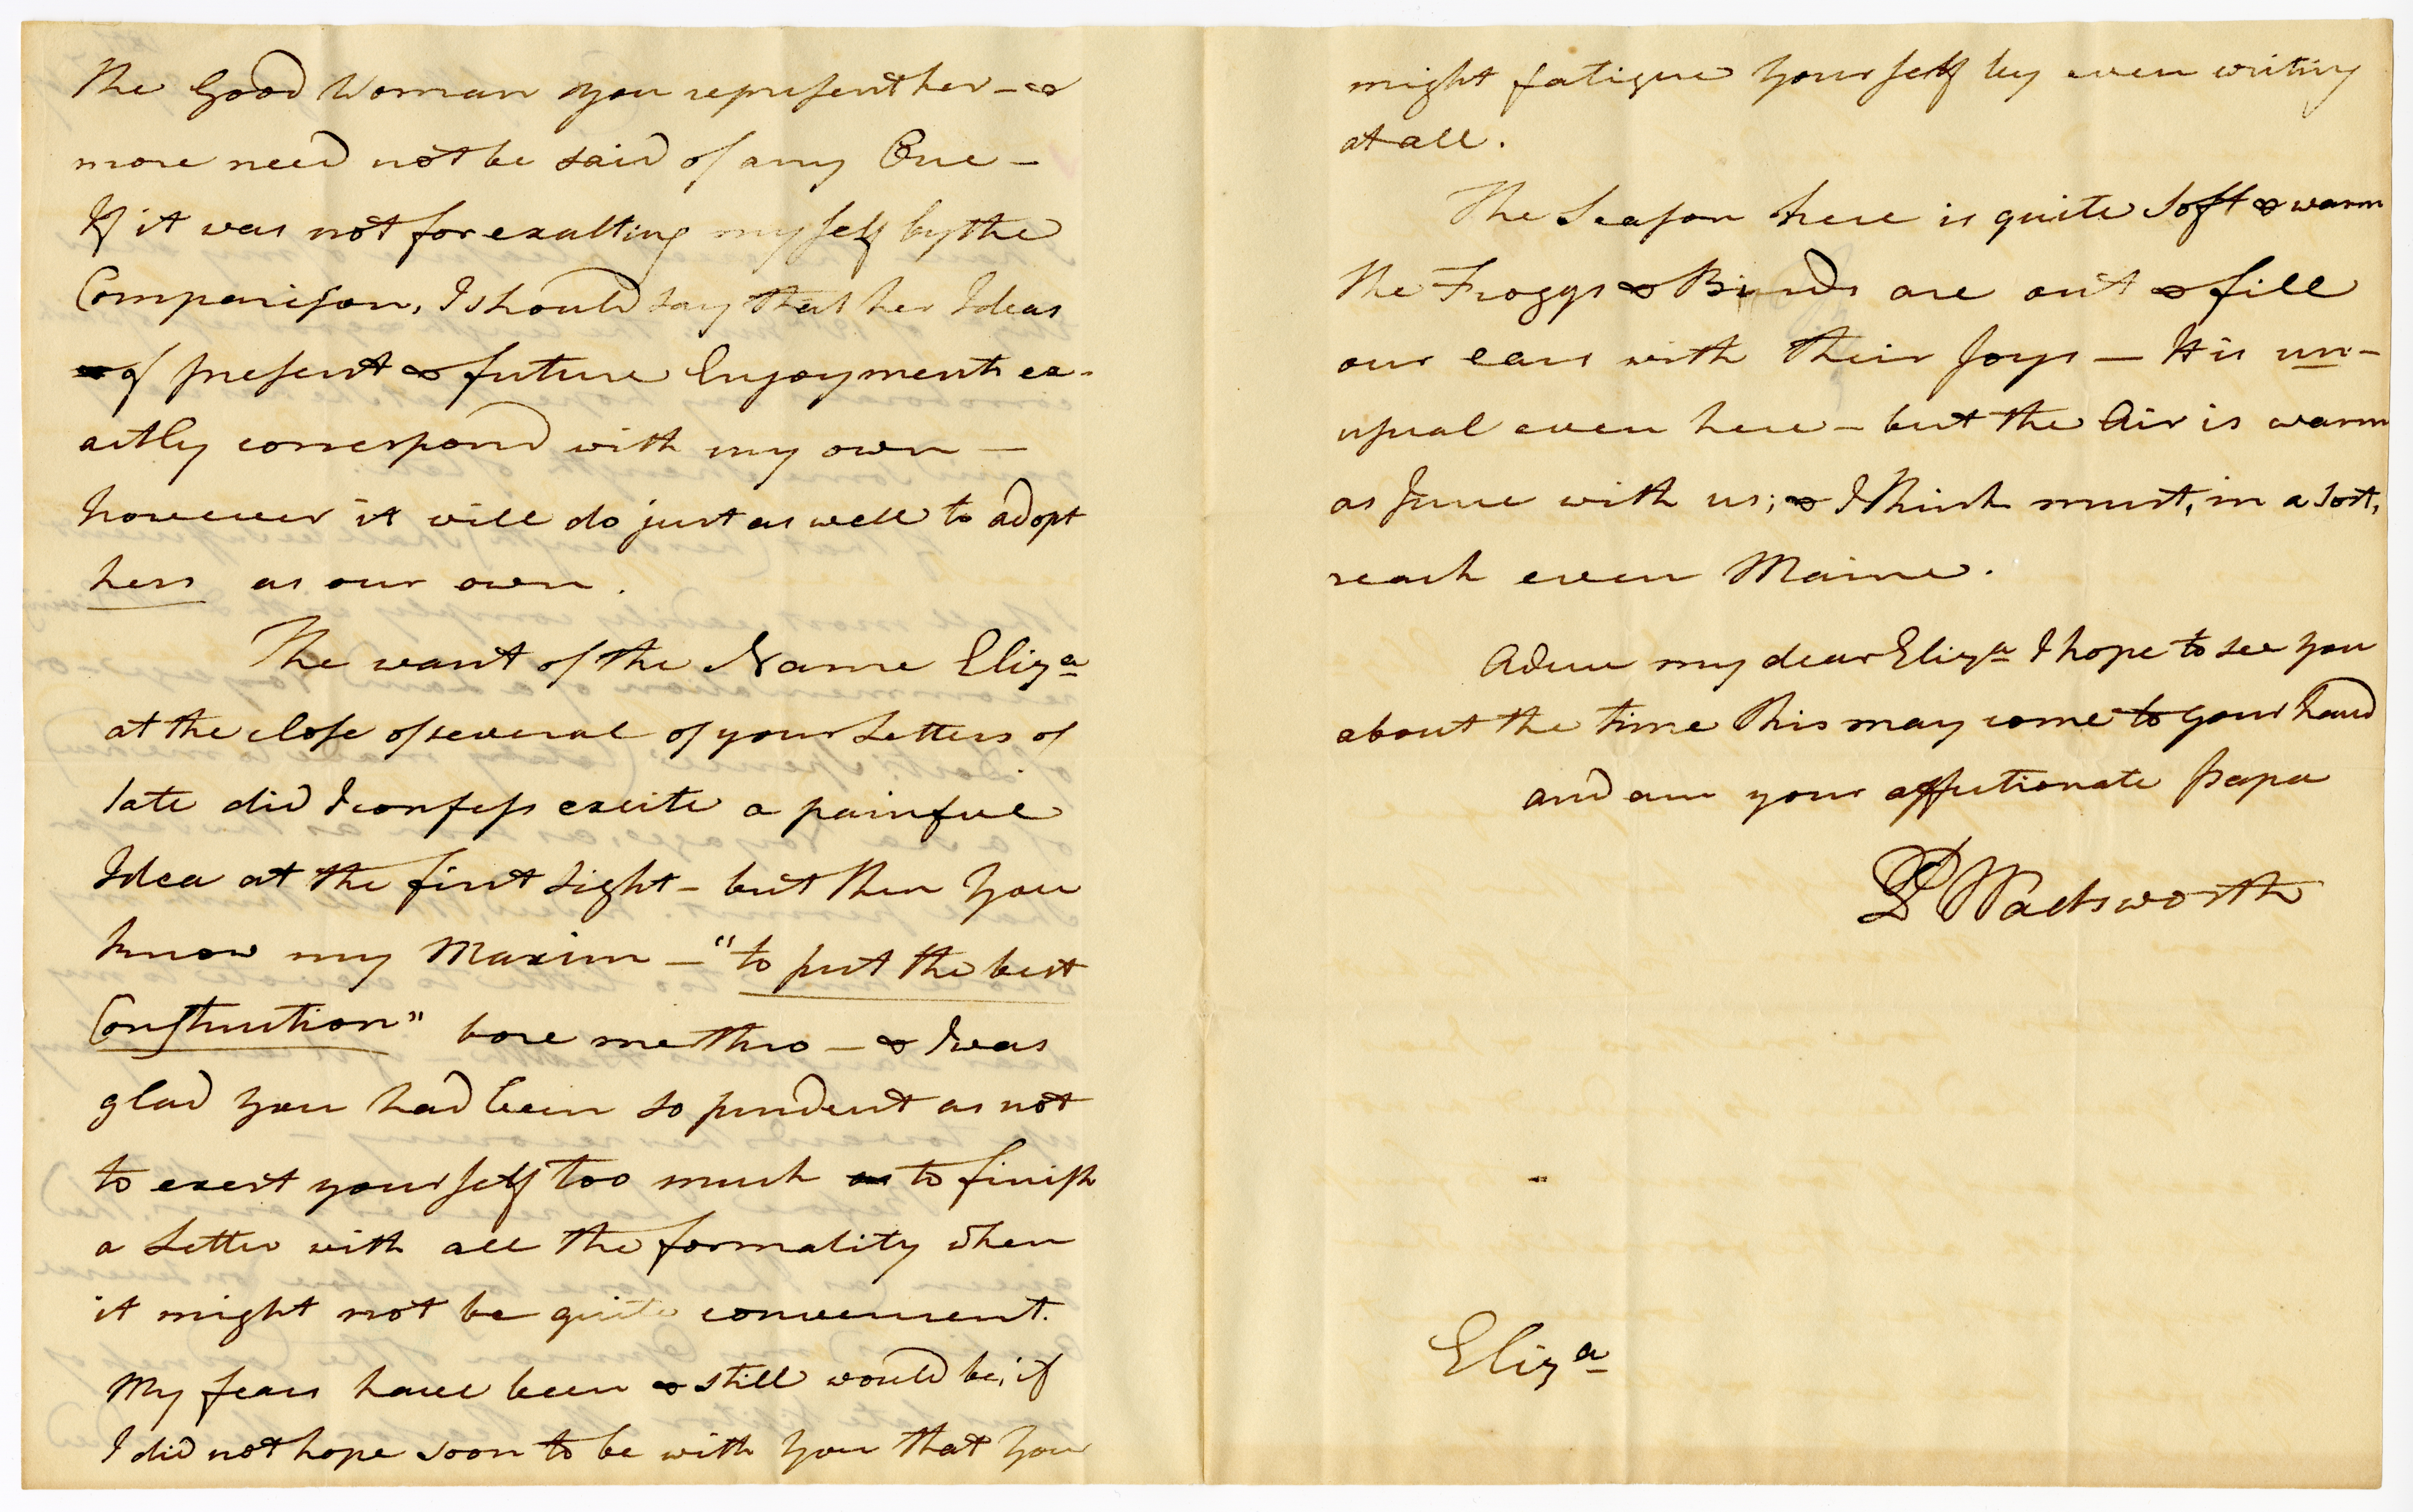 The Good Woman you represent her - &
more need not be said of any One -
If it was not for exalting myself by the
Comparison, I should say that her Ideas
of present & future Enjoyment ex-
actly correspond with my own -
however it will do just as well to adopt
hers as our own.
The want of the Name Eliza
at the close of several of your Letters of
late did I confess excite a painful
Idea at the first sight - but then you
know my Maxim - "to put the best
Construction" bore me thro - & I was
glad you had been so prudent as not
to exert yourself too much as to finish
a Letter with all the formality when
it might not be quite convenient.
My fears have been & still would be, if
I did not hope soon to be with you that you
might fatigue yourself by even writing
at all.
The Season here is quite soft & warm
the Froggs & Birds are out & fill
our ears with their Joys - It is un-
usual even here - but the Air is warm
as June with us; & I think must, in a sort,
reach even Maine.
Adieu my dear Eliza I hope to see you
about the time this may come to your hand
and am your affectionate papa
P Wadsworth
Eliza